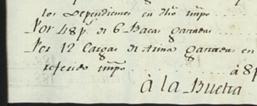 los Dependientes en dho impo
Por 48 p.s de 6 Bacas gastadas
Por 12 Cargas de Arina gastadas en
referido impo ... à 8 p
à la Buelta